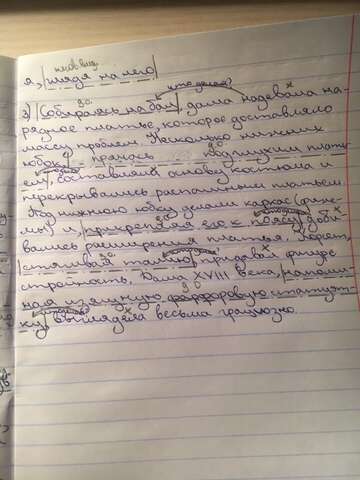 несов. вид
я, глядя на него
что делая?
3) Собираясь на бал, дама надевала на-
рядное платье, которое доставляло
массу проблем. Несколько нижних
юбок, прячась под пышным плать-
ем, составляли основу костюма и
перекрывались распашным платьем
Под нижнюю юбку делали каркас (фижи-
мы) и, прикрепляя его к поясу, доби-
вались расширения платья. Корсет,
стягивая талию, придавал фигуре
стройность. Дама XVIII века, напоми-
ная изящную фарфоровую статуэт-
ку, выглядела весьма грациозно.